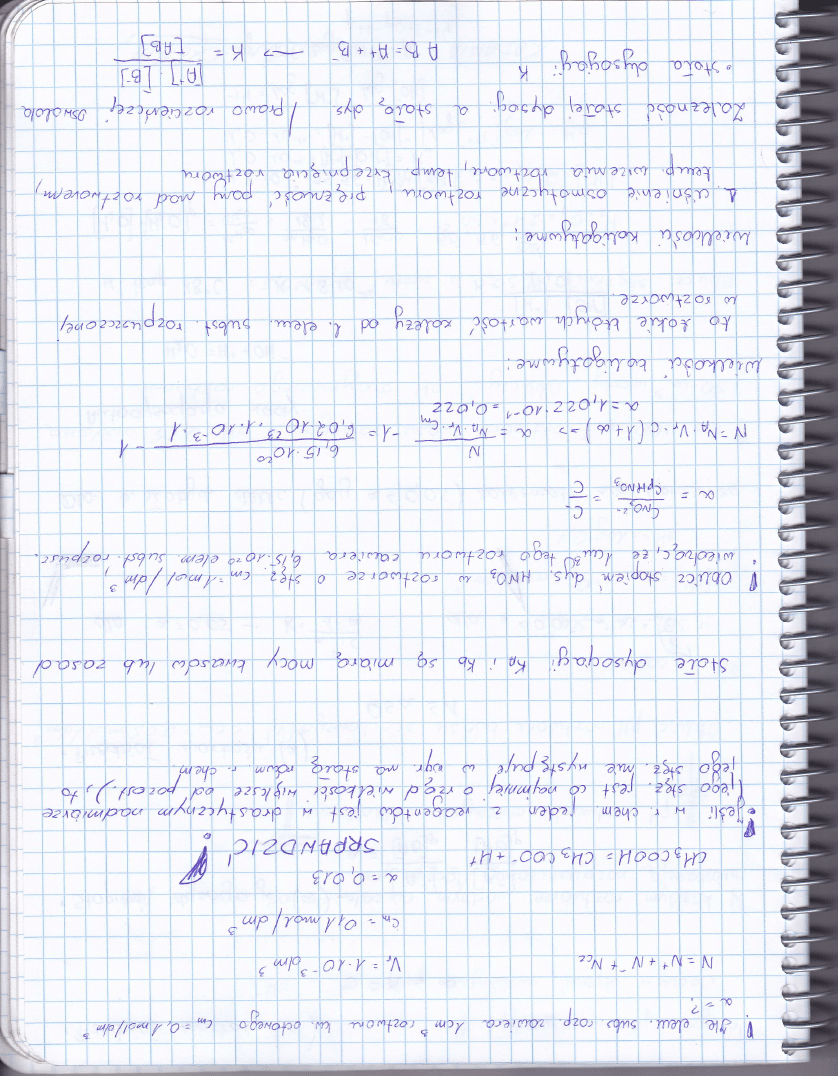 ! Ile elem. subs rozp. zawiera 1cm³ roztworu kw. octowego cm = 0,1 mol/dm³
α = ?
N = N⁺ + N⁻ + Ncz Vr = 1·10⁻³ dm³
cm = 0,1 mol/dm³
α = 0,013
CH3COOH = CH3COO⁻ + H⁺ SRPANDZIĆ !
! Jeśli w r. chem. jeden z reagentów jest w drastycznym nadmiarze
(jego stęż. jest co najmniej o rząd wielkości większe od pozost.), to
jego stęż. nie występuje w wyr. na stałą równ. r. chem.
Stałe dysocjacji KA i Kb są miarą mocy kwasów lub zasad
! Oblicz stopień dys. HNO3 w roztworze o stęż. cm = 1 mol/dm³,
wiedząc, że 1cm³ tego roztworu zawiera 6,15·10²⁰ elem. subst. rozpusz.
α = CNO2⁻ / CpHNO3 = C⁻ / C
N = NA·Vr·c(1+α) => α = N / NA·Vr·cm - 1 = 6,15·10²⁰ / 6,02·10²³·1·10⁻³·1 - 1
α = 1,022·10⁻¹ = 0,022
Wielkości koligatywne:
to takie których wartość zależy od l. elem. subst. rozpuszczonej
w roztworze.
Wielkości koligatywne:
1. ciśnienie osmotyczne roztworu, prężność pary nad roztworem,
temp. wrzenia roztworu, temp. krzepnięcia roztworu
Zależność stałej dysocj. a stałą dys. / prawo rozcieńczeń Oswalda
• stała dysocjacji K AB = A⁺ + B⁻ → K = [A⁺]·[B⁻] / [AB]